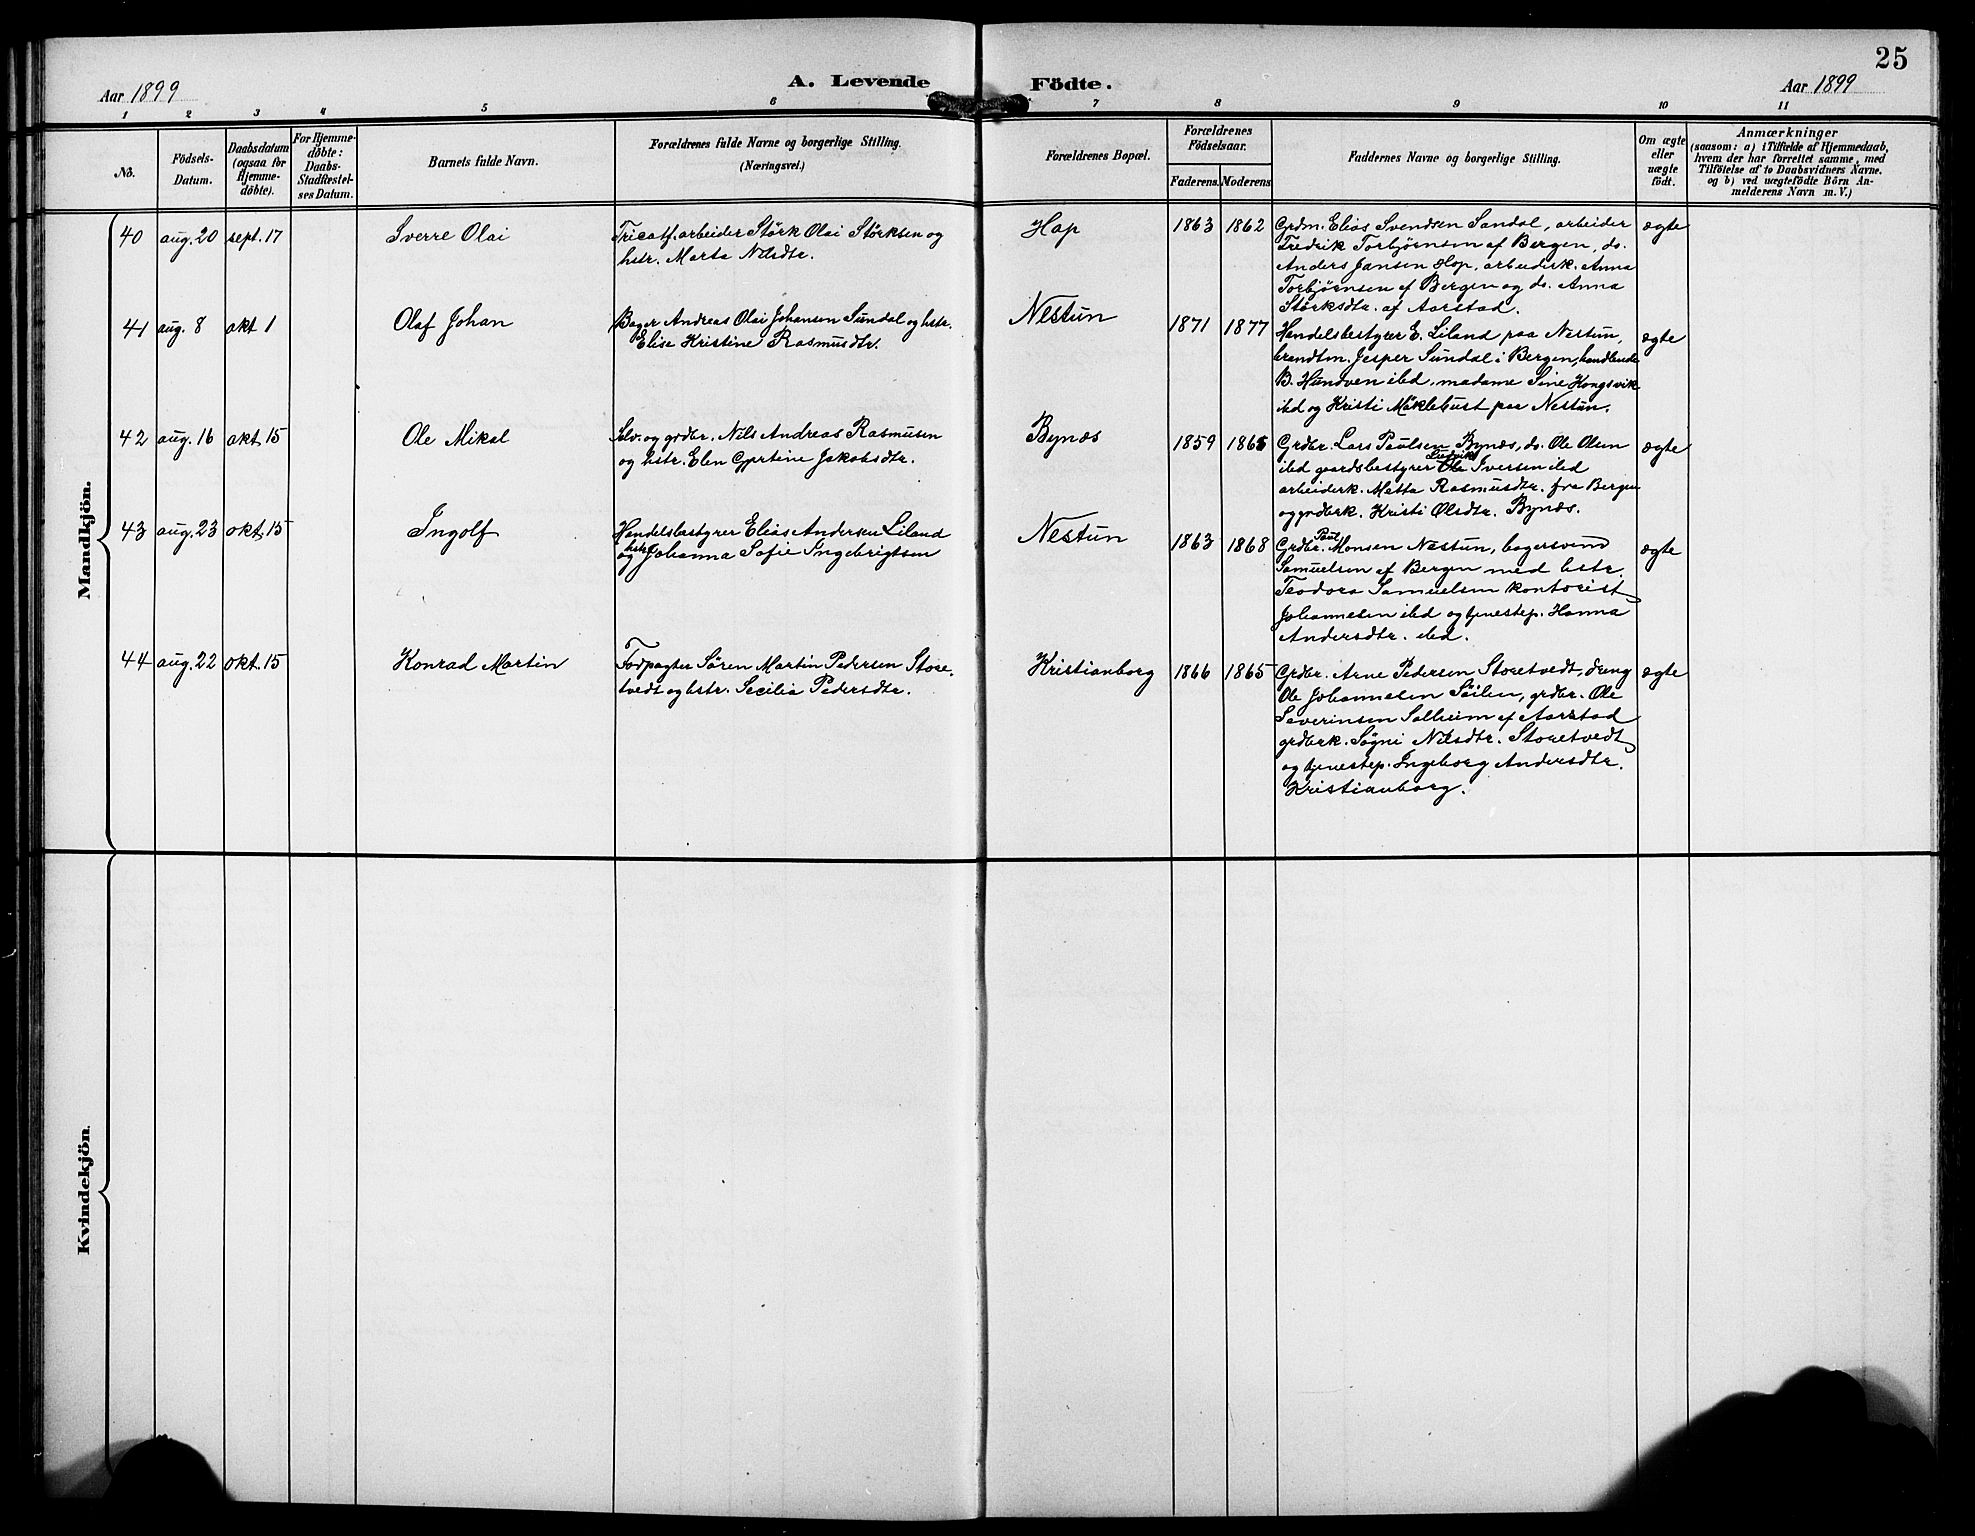 25
A. Levende Födte.
Aar 1899
Aar 1899
1 2 3 4 5 6 7 8 9 10 11
No.
Födsels-
Datum.
Daabsdatum
(ogsaa for
Hjemme-
döbte).
For Hjemme-
döbte:
Daabs-
Stadfæstel-
ses Datum.
Barnets fulde Navn.
Forældrenes fulde Navne og borgerlige Stilling.
(Næringsvei.)
Forældrenes Bopæl.
Forældrenes
Födselsaar.
Faderens.
Moderens
Faddernes Navne og borgerlige Stilling.
Om ægte
eller
uægte
födt.
Anmærkninger
(saasom: a) i Tilfælde af Hjemmedaab,
hvem der har forrettet samme, med
Tilföielse af to Daabsvidners Navne.
og b) ved uægtefödte Börn An-
melderens Navn m. V.)
Mandkjön.
40 aug. 20 sept. 17
Sverre Olai
Tricotf. arbeider Störk Olai Störksen og
hstr. Marta Nilsdtr.
Hop
1863 1862
Grdm. Elias Svendsen Sandal, arbeider
Fredrik Torbjørnsen af Bergen, do.
Anders Jansen Hop, arbeiderk. Anna
Torbjørnsen af Bergen og do. Anna
Störksdtr. af Aarstad.
ægte
41 aug. 8 okt 1
Olaf Johan
Bager Andreas Olai Johansen Sundal og hstr.
Elise Kristine Rasmusdtr.
Nestun
1871 1877
Handelsbestyrer E. Liland paa Nestun,
brandtm. Jesper Sundal i Bergen, handlende
B. Hundven ibd, madame Sine Kongsvik
ibd og Kristi Möklebust paa Nestun.
ægte
42 aug. 16 okt. 15
Ole Mikal
Selv. og grdbr. Nils Andreas Rasmusen
og hstr. Elen Gjertine Jakobsdtr.
Bynæs
1859 1865
Grdbr. Lars Paulsen Bynæs, do. Ole Olsen
ibd gaardsbestyrer Ole Ludvik Iversen ibd
arbeiderk. Metta Rasmusdtr. fra Bergen
og grdbrk. Kristi Olsdtr. Bynæs.
ægte
43 aug. 23 okt. 15
Ingolf
Handelsbestyrer Elias Andersen Liland
og hstr. Johanna Sofie Ingebrigtsen
Nestun
1863 1868
Grdbr. Paul Monsen Nestun, bagersvend
Samuelsen af Bergen med hstr.
Teodora Samuelsen kontorist
Johannesen ibd og tjenestep. Hanna
Andersdtr. ibd.
ægte
44 aug. 22 okt. 15
Konrad Martin
Fodpagter Sören Martin Pedersen Store-
tvedt og hstr. Secilia Pedersdtr.
Kristianborg
1866 1865
Grdbr. Arne Pedersen Storetvedt, dreng
Ole Johannesen Söilen, grdbr. Ole
Severinsen Solheim af Aarstad
grdbrk. Søgni Nilsdtr. Storetvedt
og tjenestep. Ingeborg Andersdtr.
Kristianborg.
ægte
Kvindekjön.